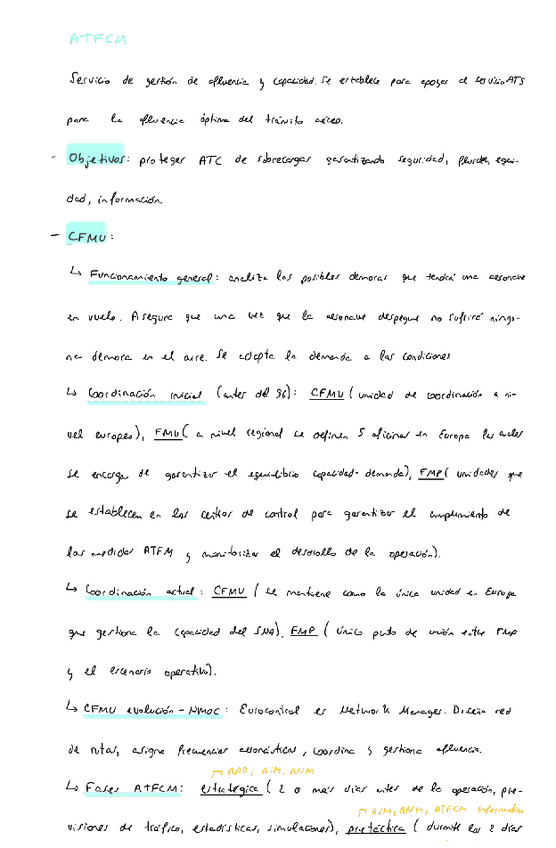 ATFCM
Servicio de gestión de afluencia y capacidad. Se establece para apoyar al servicio ATS
para la afluencia óptima del tránsito aéreo.
- Objetivos: proteger ATC de sobrecargas garantizando seguridad, fluidez, equi-
dad, información.
- CFMU:
↳ Funcionamiento general: analiza las posibles demoras que tendrá una aeronave
en vuelo. Asegura que una vez que la aeronave despegue no sufrirá ningu-
na demora en el aire. Se adapta la demanda a las condiciones
↳ Coordinación inicial (antes del 96): CFMU (unidad de coordinación a ni-
vel europeo), FMU (a nivel regional se definen 5 oficinas en Europa las cuales
se encarga de garantizar el equilibrio capacidad-demanda), FMP (unidades que
se establecen en los centros de control para garantizar el cumplimiento de
las medidas ATFM y monitorizar el desarrollo de la operación).
↳ Coordinación actual: CFMU (se mantiene como la única unidad en Europa
que gestiona la capacidad del SNA), FMP (único punto de unión entre FMP
y el escenario operativo).
↳ CFMU evolución - NMOC: Eurocontrol es Network Manager. Diseña red
de rutas, asigna frecuencias aeronáuticas, coordina y gestiona afluencia.
→ RAD, AIM, ANM
↳ Fases ATFCM: estratégica (2 o más días antes de la operación, pre-
→ AIM, ANM, ATFCM information
visiones de tráfico, estadísticas, simulaciones), pretáctica (durante los 2 días